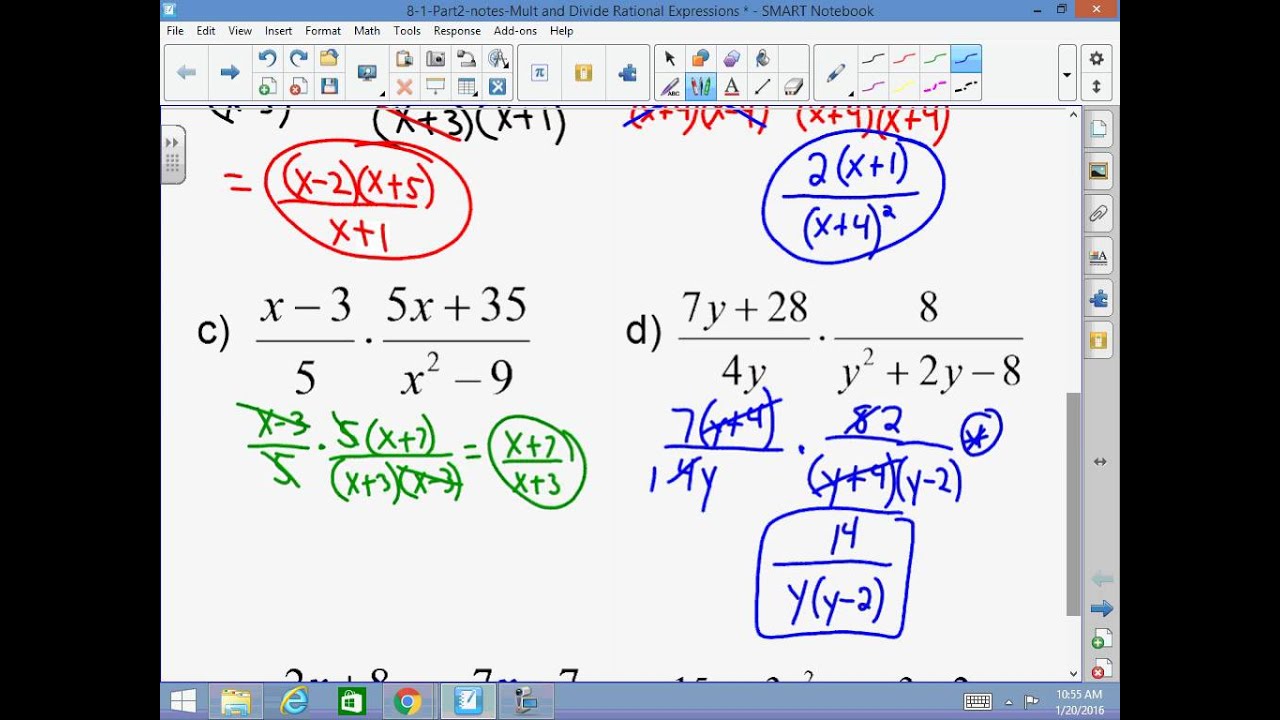 8-1-Part2-notes-Mult and Divide Rational Expressions * - SMART Notebook
File Edit View Insert Format Math Tools Response Add-ons Help
(x+3)(x+1)
(x+4)(x-4) (x+4)(x+4)
= (x-2)(x+5)
x+1
2(x+1)
(x+4)²
c) x - 3 / 5 · 5x + 35 / x² - 9
x-3 / 5 · 5(x+7) / (x+3)(x-3) = x+7 / x+3
d) 7y + 28 / 4y · 8 / y² + 2y - 8
7(y+4) / 1 4y · 8 2 / (y+4)(y-2) *
14
y(y-2)
10:55 AM
1/20/2016